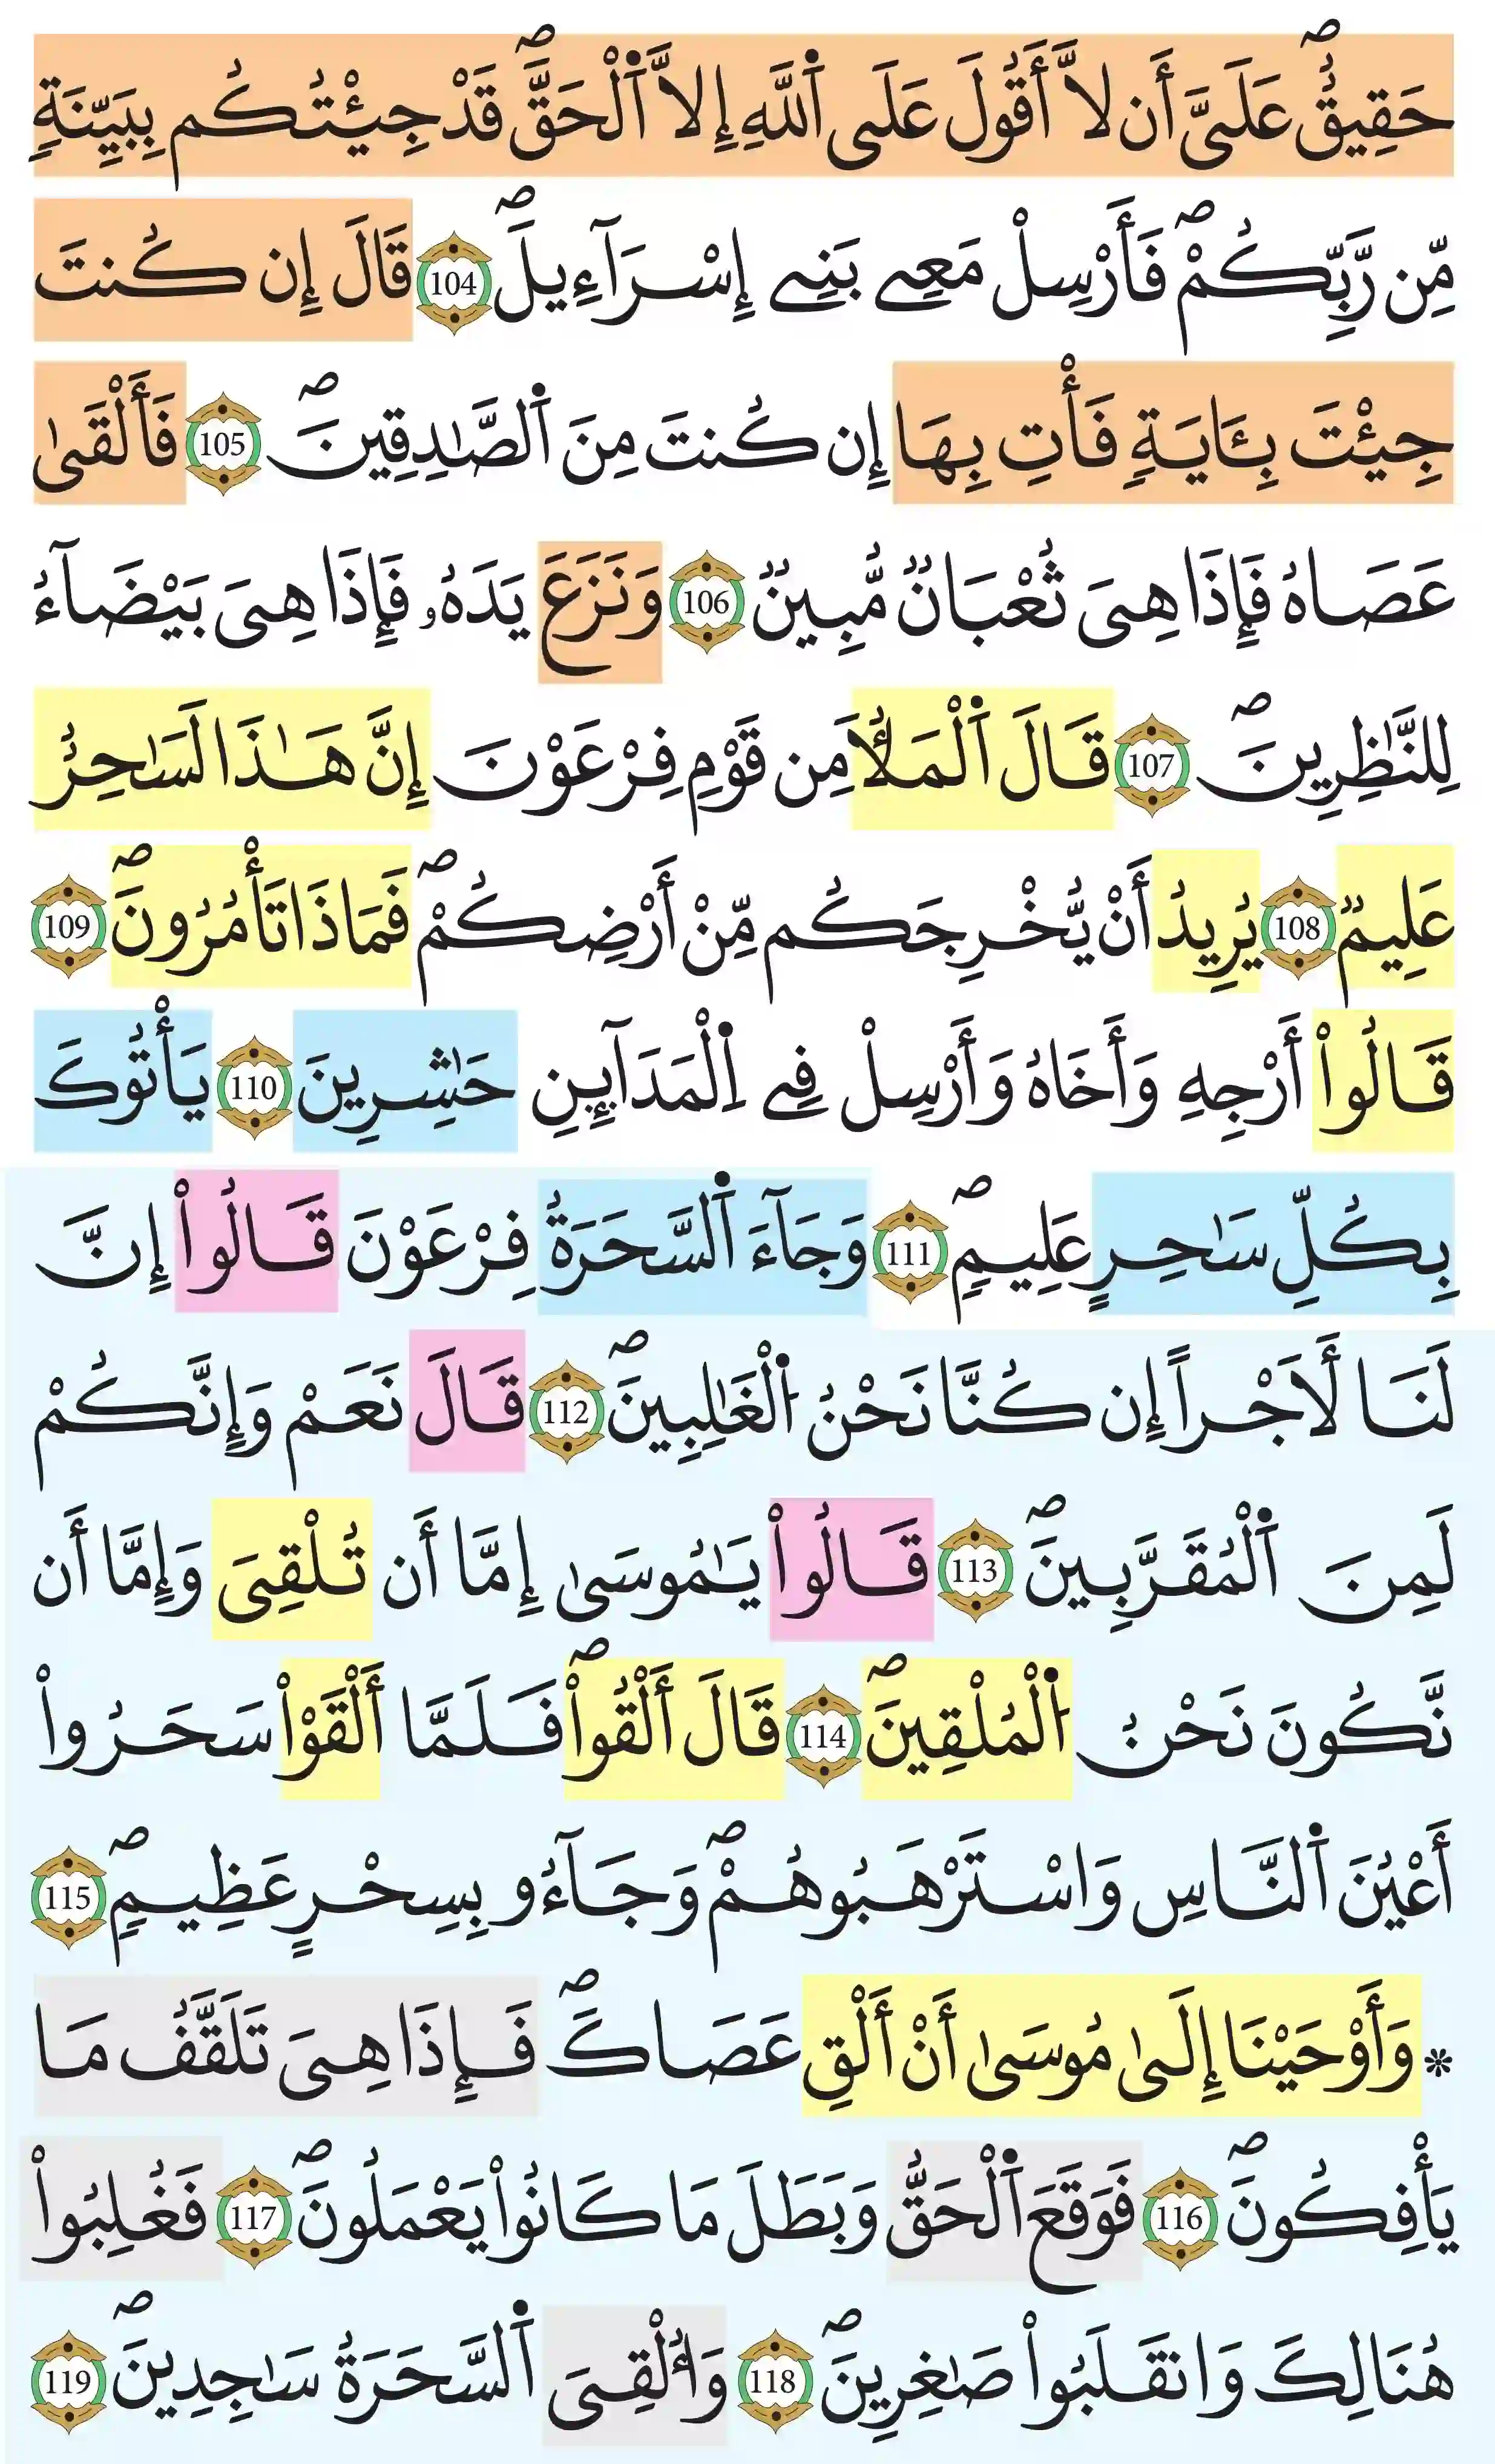 حَقِيقٌ عَلَيَّ أَن لَّا أَقُولَ عَلَى اَ۬للَّهِ إِلَّا اَ۬لْحَقَّۖ قَدْ جِئْتُكُم بِبَيِّنَةٖ
مِّن رَّبِّكُمْۖ فَأَرْسِلْ مَعِے بَنِے إِسْرَآءِيلَۖ 104 قَالَ إِن كُنتَ
جِئْتَ بِـَٔايَةٖ فَأْتِ بِهَا إِن كُنتَ مِنَ اَ۬لصَّٰدِقِينَۖ 105 فَأَلْقَىٰ
عَصَاهُ فَإِذَا هِىَ ثُعْبَانٞ مُّبِينٞ 106 وَنَزَعَ يَدَهُۥ فَإِذَا هِىَ بَيْضَآءُ
لِلنَّٰظِرِينَۖ 107 قَالَ اَ۬لْمَلَأُ مِن قَوْمِ فِرْعَوْنَ إِنَّ هَٰذَا لَسَٰحِرٌ
عَلِيمٞ 108 يُرِيدُ أَنْ يُّخْرِجَكُم مِّنْ أَرْضِكُمْۖ فَمَاذَا تَأْمُرُونَۖ 109
قَالُواْ أَرْجِهِ وَأَخَاهُ وَأَرْسِلْ فِے اِ۬لْمَدَآئِنِ حَٰشِرِينَ 110 يَأْتُوكَ
بِكُلِّ سَٰحِرٍ عَلِيمٖۖ 111 وَجَآءَ اَ۬لسَّحَرَةُ فِرْعَوْنَ قَالُواْ إِنَّ
لَنَا لَأَجْراً إِن كُنَّا نَحْنُ اُ۬لْغَٰلِبِينَۖ 112 قَالَ نَعَمْ وَإِنَّكُمْ
لَمِنَ اَ۬لْمُقَرَّبِينَۖ 113 قَالُواْ يَٰمُوسَىٰ إِمَّا أَن تُلْقِىَ وَإِمَّا أَن
نَّكُونَ نَحْنُ اُ۬لْمُلْقِينَۖ 114 قَالَ أَلْقُواْۖ فَلَمَّا أَلْقَوْاْ سَحَرُواْ
أَعْيُنَ اَ۬لنَّاسِ وَاسْتَرْهَبُوهُمْۖ وَجَآءُو بِسِحْرٍ عَظِيمٖۖ 115
* وَأَوْحَيْنَا إِلَىٰ مُوسَىٰ أَنْ أَلْقِ عَصَاكَۖ فَإِذَا هِىَ تَلَقَّفُ مَا
يَأْفِكُونَۖ 116 فَوَقَعَ اَ۬لْحَقُّ وَبَطَلَ مَا كَانُواْ يَعْمَلُونَۖ 117 فَغُلِبُواْ
هُنَالِكَ وَانقَلَبُواْ صَٰغِرِينَۖ 118 وَأُلْقِىَ اَ۬لسَّحَرَةُ سَٰجِدِينَۖ 119